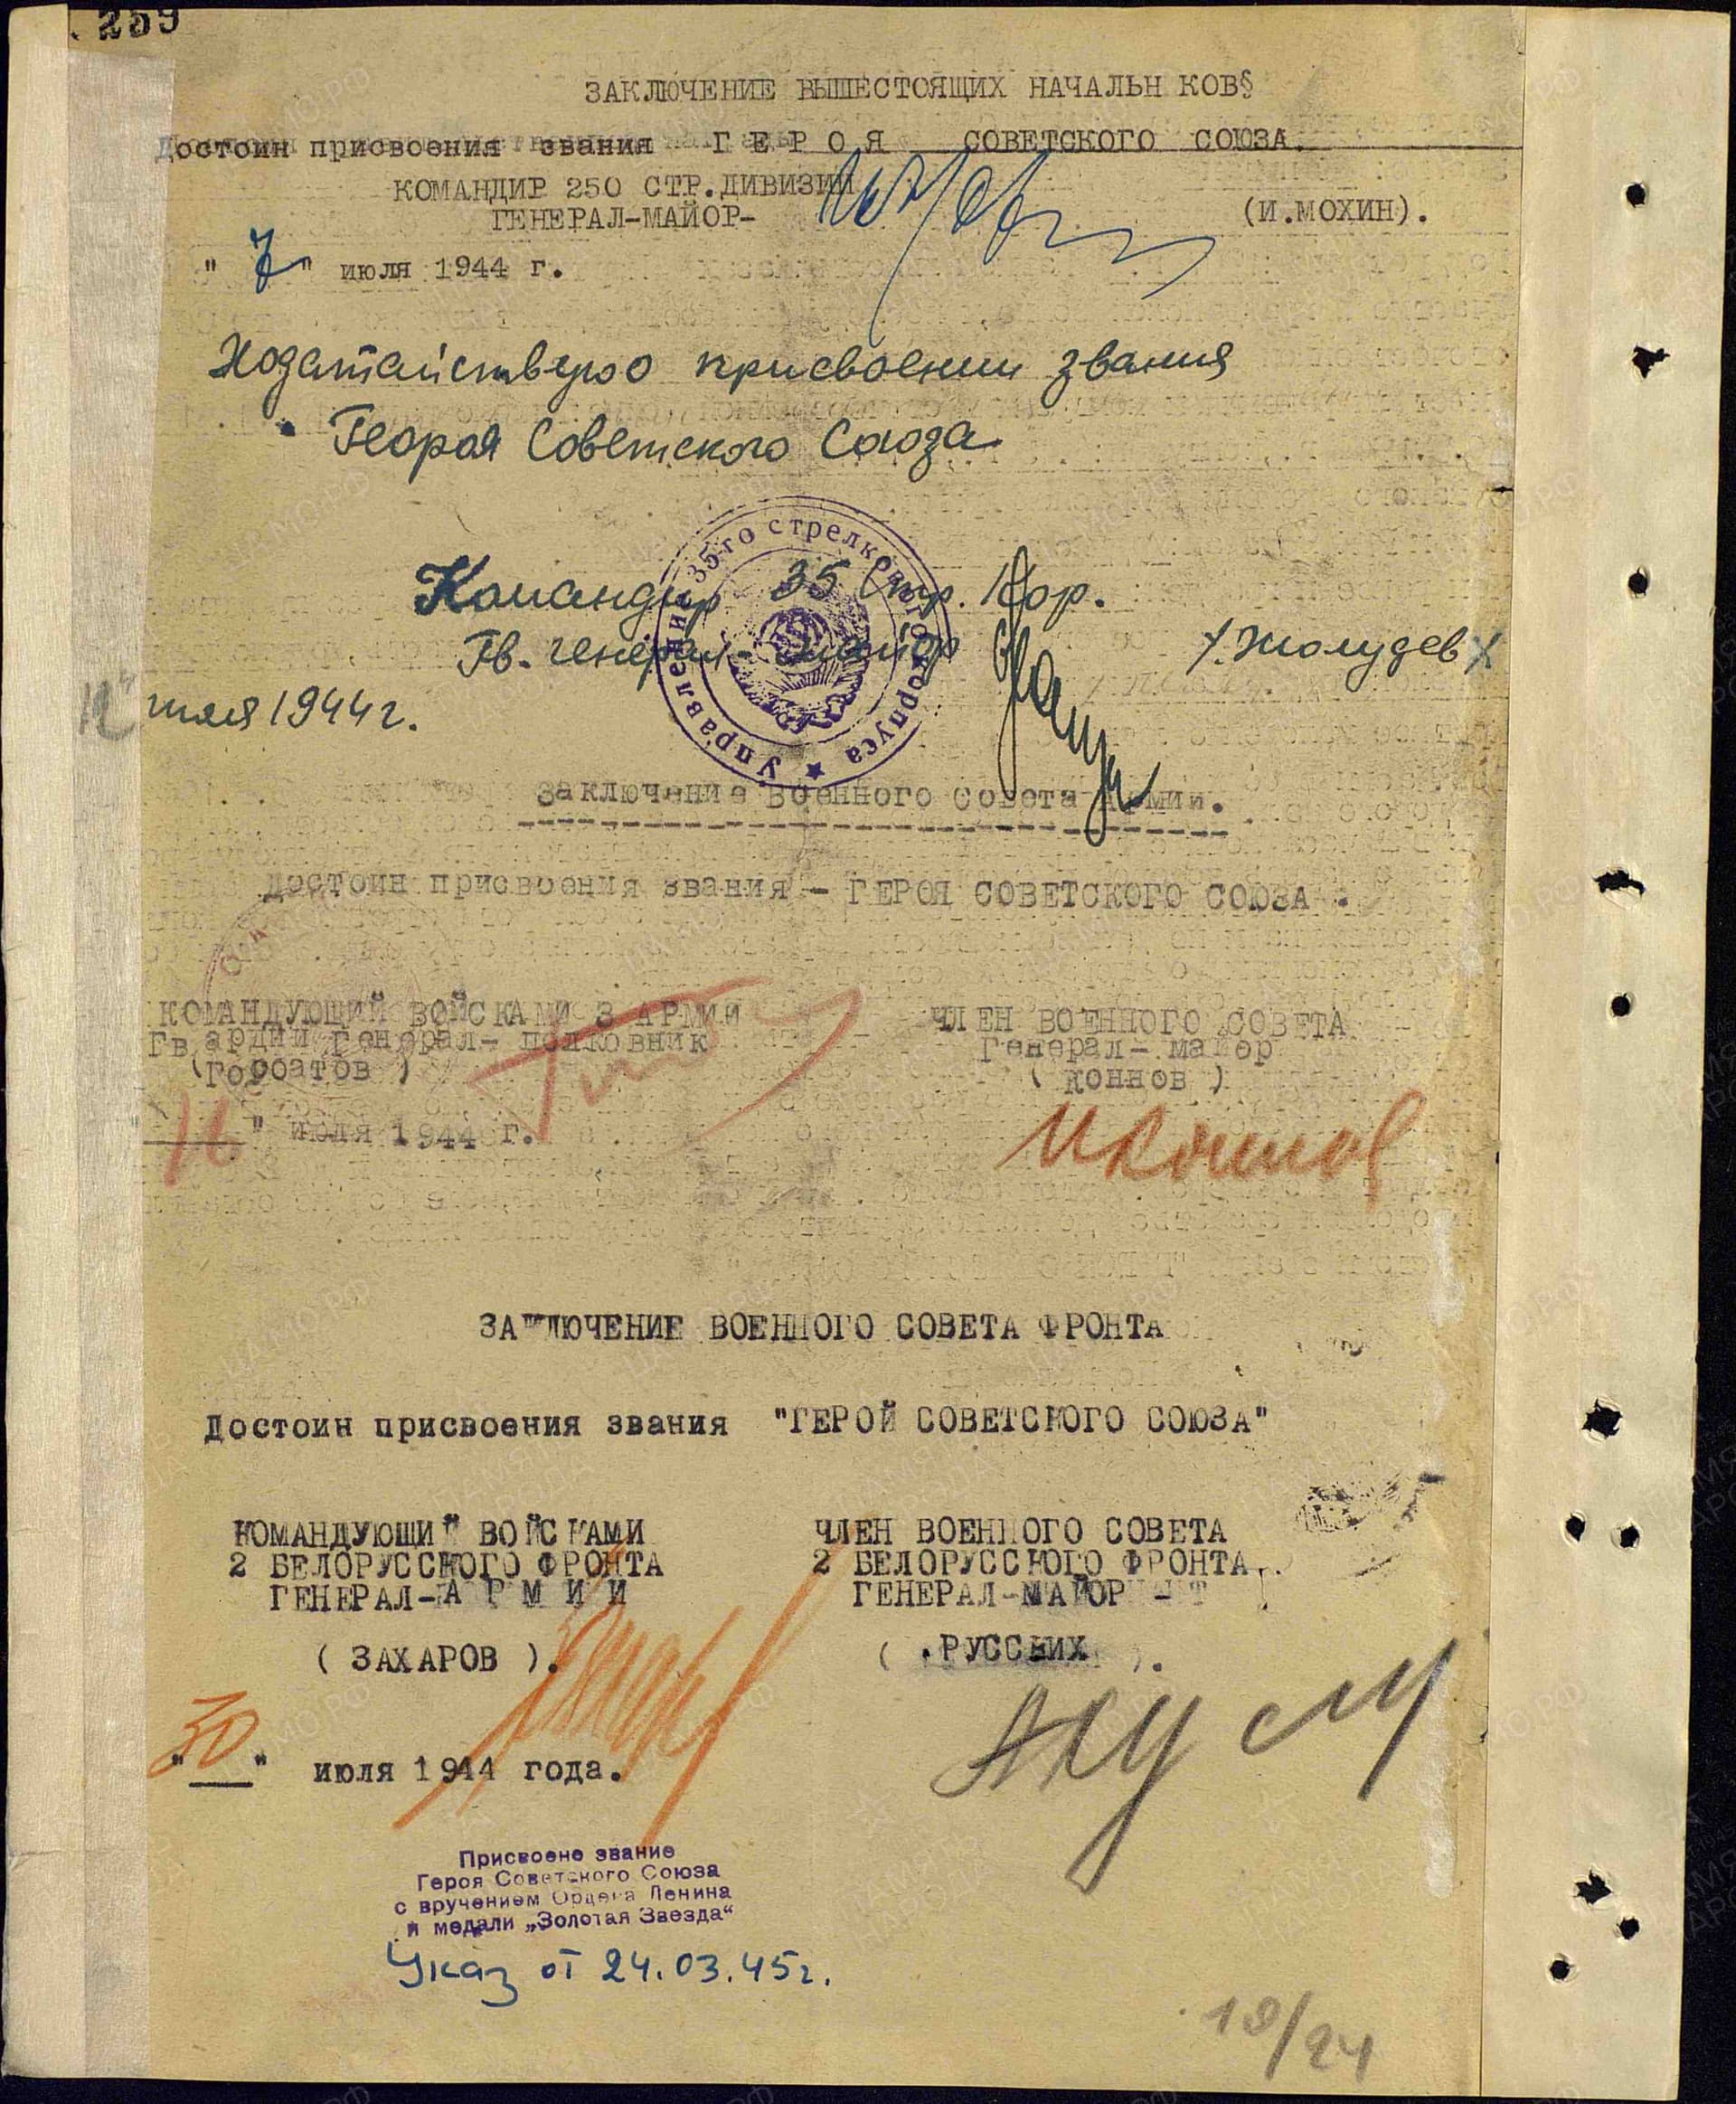 259
ЗАКЛЮЧЕНИЕ ВЫШЕСТОЯЩИХ НАЧАЛЬН КОВ§
Достоин присвоения звания Г Е Р О Я СОВЕТСКОГО СОЮЗА.
КОМАНДИР 250 СТР.ДИВИЗИИ
ГЕНЕРАЛ-МАЙОР- (И.МОХИН).
"7" июля 1944 г.
Ходатайствую о присвоении звания
Героя Советского Союза
Управление 35-го стрелкового корпуса
Командир 35 Стр. Кор.
Гв. генерал-майор /Жолудев/
12" июля 1944 г.
Заключение Военного Совета Армии.
Достоин присвоения звания - ГЕРОЯ СОВЕТСКОГО СОЮЗА.
КОМАНДУЮЩИЙ ВОЙСКАМИ 3 АРМИИ ЧЛЕН ВОЕННОГО СОВЕТА
Гвардии Генерал- полковник Генерал- майор
( Горбатов ) ( Коннов )
16" июля 1944 г. ИКоннов
ЗАКЛЮЧЕНИЕ ВОЕННОГО СОВЕТА ФРОНТА
Достоин присвоения звания "ГЕРОЙ СОВЕТСКОГО СОЮЗА"
КОМАНДУЮЩИЙ ВОЙСКАМИ ЧЛЕН ВОЕННОГО СОВЕТА
2 БЕЛОРУССКОГО ФРОНТА 2 БЕЛОРУССКОГО ФРОНТА
ГЕНЕРАЛ-А Р М И И ГЕНЕРАЛ-МАЙОР
( ЗАХАРОВ ). ( .РУССКИХ ).
"30" июля 1944 года.
Присвоено звание
Героя Советского Союза
с вручением Ордена Ленина
и медали „Золотая Звезда“
Указ от 24.03.45г.
19/24